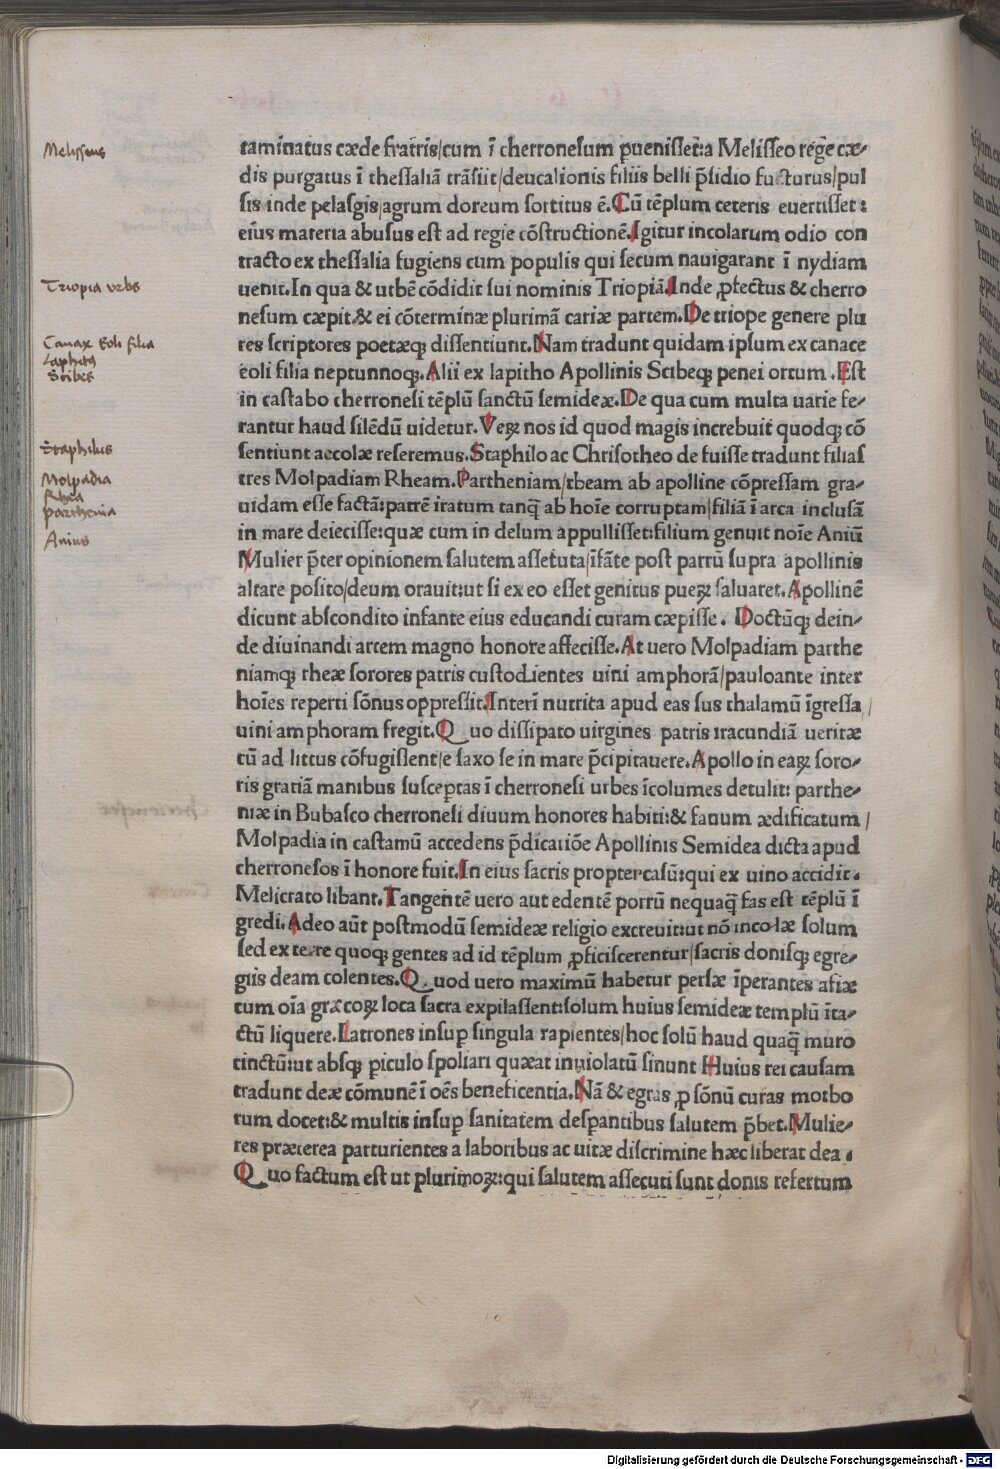 Melisseus
taminatus cæde fratris/cum ī cherronesum ꝑuenisset:a Melisseo rege cæ-
dis purgatus ī thessaliā trāsiit/deucalionis filiis belli p̄sidio futurus/pul
sis inde pelasgis/agrum doreum sortitus ē.Cū tēplum ceteris euertisset:
eius materia abusus est ad regie cōstructionē.Igitur incolarum odio con
tracto ex thessalia fugiens cum populis qui secum nauigarant ī nydiam
Triopia vrbs
uenit.In qua & urbē cōdidit sui nominis Triopiā.Inde ꝓfectus & cherro
nesum cæpit.& ei cōterminæ plurimā cariæ partem.De triope genere plu
Canax Eoli filia
res scriptores poetæqꝫ dissentiunt.Nam tradunt quidam ipsum ex canace
Laphith
Stibes
eoli filia neptunnoqꝫ.Alii ex lapitho Apollinis Stibeqꝫ penei ortum .Est
in castabo cherronesi tēplū sanctū semideæ.De qua cum multa uarie fe-
rantur haud silēdū uidetur.Veꝝ nos id quod magis increbuit quodqꝫ cō
Staphilus
sentiunt accolæ referemus.Staphilo ac Chrisotheo de fuisse tradunt filias
Molpadia
Rhea
parthenia
tres Molpadiam Rheam.Partheniam/rheam ab apolline cōpressam gra-
uidam esse factā:patrē iratum tanq̄ ab hoīe corruptam/filiā ī arca inclusā
Anius
in mare deiecisse:quæ cum in delum appullisset:filium genuit noīe Aniū
Mulier p̄ter opinionem salutem assetuta/īfāte post partū supra apollinis
altare posito/deum orauit:ut si ex eo esset genitus pueꝝ saluaret.Apollinē
dicunt abscondito infante eius educandi curam cæpisse. Doctūqꝫ dein-
de diuinandi artem magno honore affecisse.At uero Molpadiam parthe
niamqꝫ rheæ sorores patris custodientes uini amphorā/pauloante inter
hoīes reperti sōnus oppressit.Interī nutrita apud eas sus thalamū īgressa/
uini amphoram fregit.Quo dissipato uirgines patris iracundiā ueritæ
cū ad littus cōfugissent/e saxo se in mare p̄cipitauere.Apollo in eaꝝ soro-
ris gratiā manibus susceptas ī cherronesi urbes īcolumes detulit: parthe-
niæ in Bubasco cherronesi diuum honores habiti:& fanum ædificatum/
Molpadia in castamū accedens p̄dicatiōe Apollinis Semidea dicta apud
cherronesos ī honore fuit.In eius sacris propter casū:qui ex uino accidit.
Melicrato libant.Tangentē uero aut edentē porrū nequaq̄ fas est tēplū ī
gredi.Adeo aūt postmodū semideæ religio excreuit:ut nō incolæ solum
sed exteræ quoqꝫ gentes ad id tēplum ꝓficiscerentur/sacris donisqꝫ egre-
giis deam colentes.Quod uero maximū habetur persæ īperantes asiæ
cum oīa græcoꝝ loca sacra expilassent:solum huius semideæ templū īta-
ctū liquere.Latrones insuꝑ singula rapientes/hoc solū haud quaq̄ muro
cinctū:ut absqꝫ ꝑiculo spoliari quæat inuiolatū sinunt Huius rei causam
tradunt deæ cōmunē ī oēs beneficentia.Nā & egras ꝓ sōnū curas morbo
rum docet:& multis insuꝑ sanitatem desꝑantibus salutem p̄bet.Mulie-
res præterea parturientes a laboribus ac uitæ discrimine hæc liberat dea.
Quo factum est ut plurimoꝝ:qui salutem assecuti sunt donis refertum
Digitalisierung gefördert durch die Deutsche Forschungsgemeinschaft - DFG